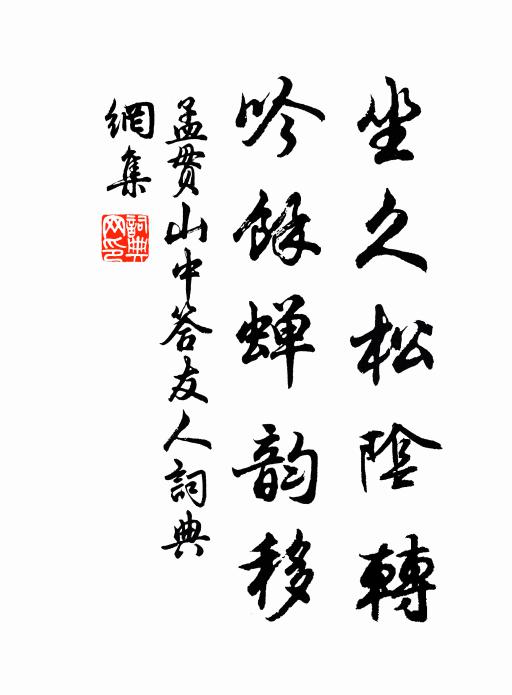 坐久松陰轉
吟餘蝉韵移
孟貫山中答友人詞典
網集
詞典
网印